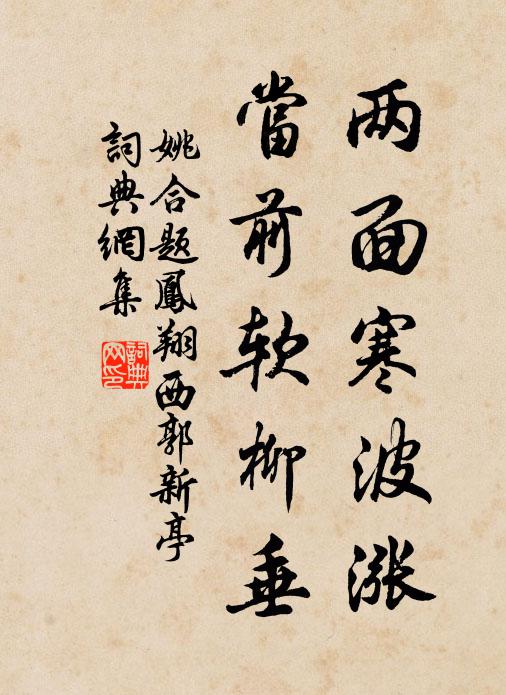 两面寒波涨
當前软柳垂
姚合题鳳翔西郭新亭
詞典網集
詞典网印